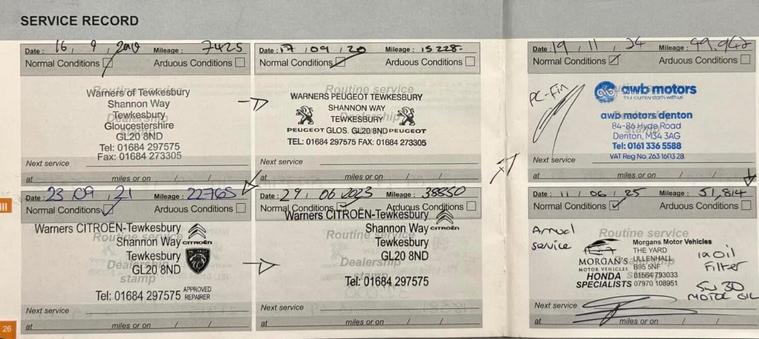 SERVICE RECORD
Date: 16 / 9 / 2019 Mileage: 7425
Normal Conditions Arduous Conditions
Routine service
Warners of Tewkesbury
Shannon Way
Tewkesbury
Gloucestershire
GL20 8ND
Tel: 01684 297575
Fax: 01684 273305
Next service
at miles or on / /
Date: 17 / 09 / 20 Mileage: 15228
Normal Conditions Arduous Conditions
Routine service
WARNERS PEUGEOT TEWKESBURY
SHANNON WAY
TEWKESBURY
PEUGEOT GLOS. GL20 8ND PEUGEOT
TEL: 01684 297575 FAX: 01684 273305
Next service
at miles or on / /
Date: 23 / 09 / 21 Mileage: 22765
Normal Conditions Arduous Conditions
Warners CITROËN-Tewkesbury
Routine service
Shannon Way CITROËN
Tewkesbury
GL20 8ND
stamp
Tel: 01684 297575 APPROVED REPAIRER
Next service
at miles or on / /
Date: 29 / 06 / 2023 Mileage: 38850
Normal Conditions Arduous Conditions
Warners CITROËN-Tewkesbury
Routine service
Shannon Way CITROËN
Tewkesbury
GL20 8ND
Dealership
stamp
Tel: 01684 297575
Next service
at miles or on / /
Date: 19 / 11 / 24 Mileage: 49,948
Normal Conditions Arduous Conditions
Routine service
awb motors
awb motors denton
84-86 Hyde Road
Denton, M34 3AG
Tel: 0161 336 5588
VAT Reg No. 263 1613 28
Next service
at miles or on / /
Date: 11 / 06 / 25 Mileage: 51,814
Normal Conditions Arduous Conditions
Annual
service
Routine service
Morgans Motor Vehicles
THE YARD
ULLENHALL
B95 5NF
01564 793033
07970 108951
MORGAN'S
MOTOR VEHICLES
HONDA
SPECIALISTS
stamp
oil
Filter
5W30
MOTOR OIL
Next service
at miles or on / /
III
26